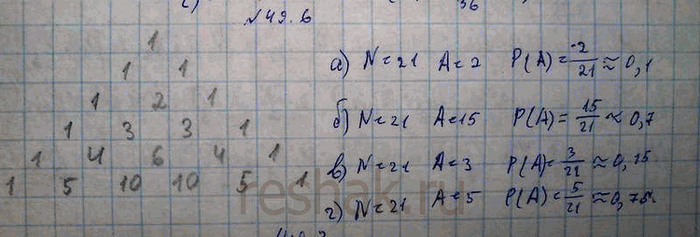 №49.6
1
1 1
1 2 1
1 3 3 1
1 4 6 4 1
1 5 10 10 5 1
а) N=21 A=2 P(A)=2/21≈0,1
б) N=21 A=15 P(A)=15/21≈0,7
в) N=21 A=3 P(A)=3/21≈0,15
г) N=21 A=5 P(A)=5/21≈0,75
reshak.ru